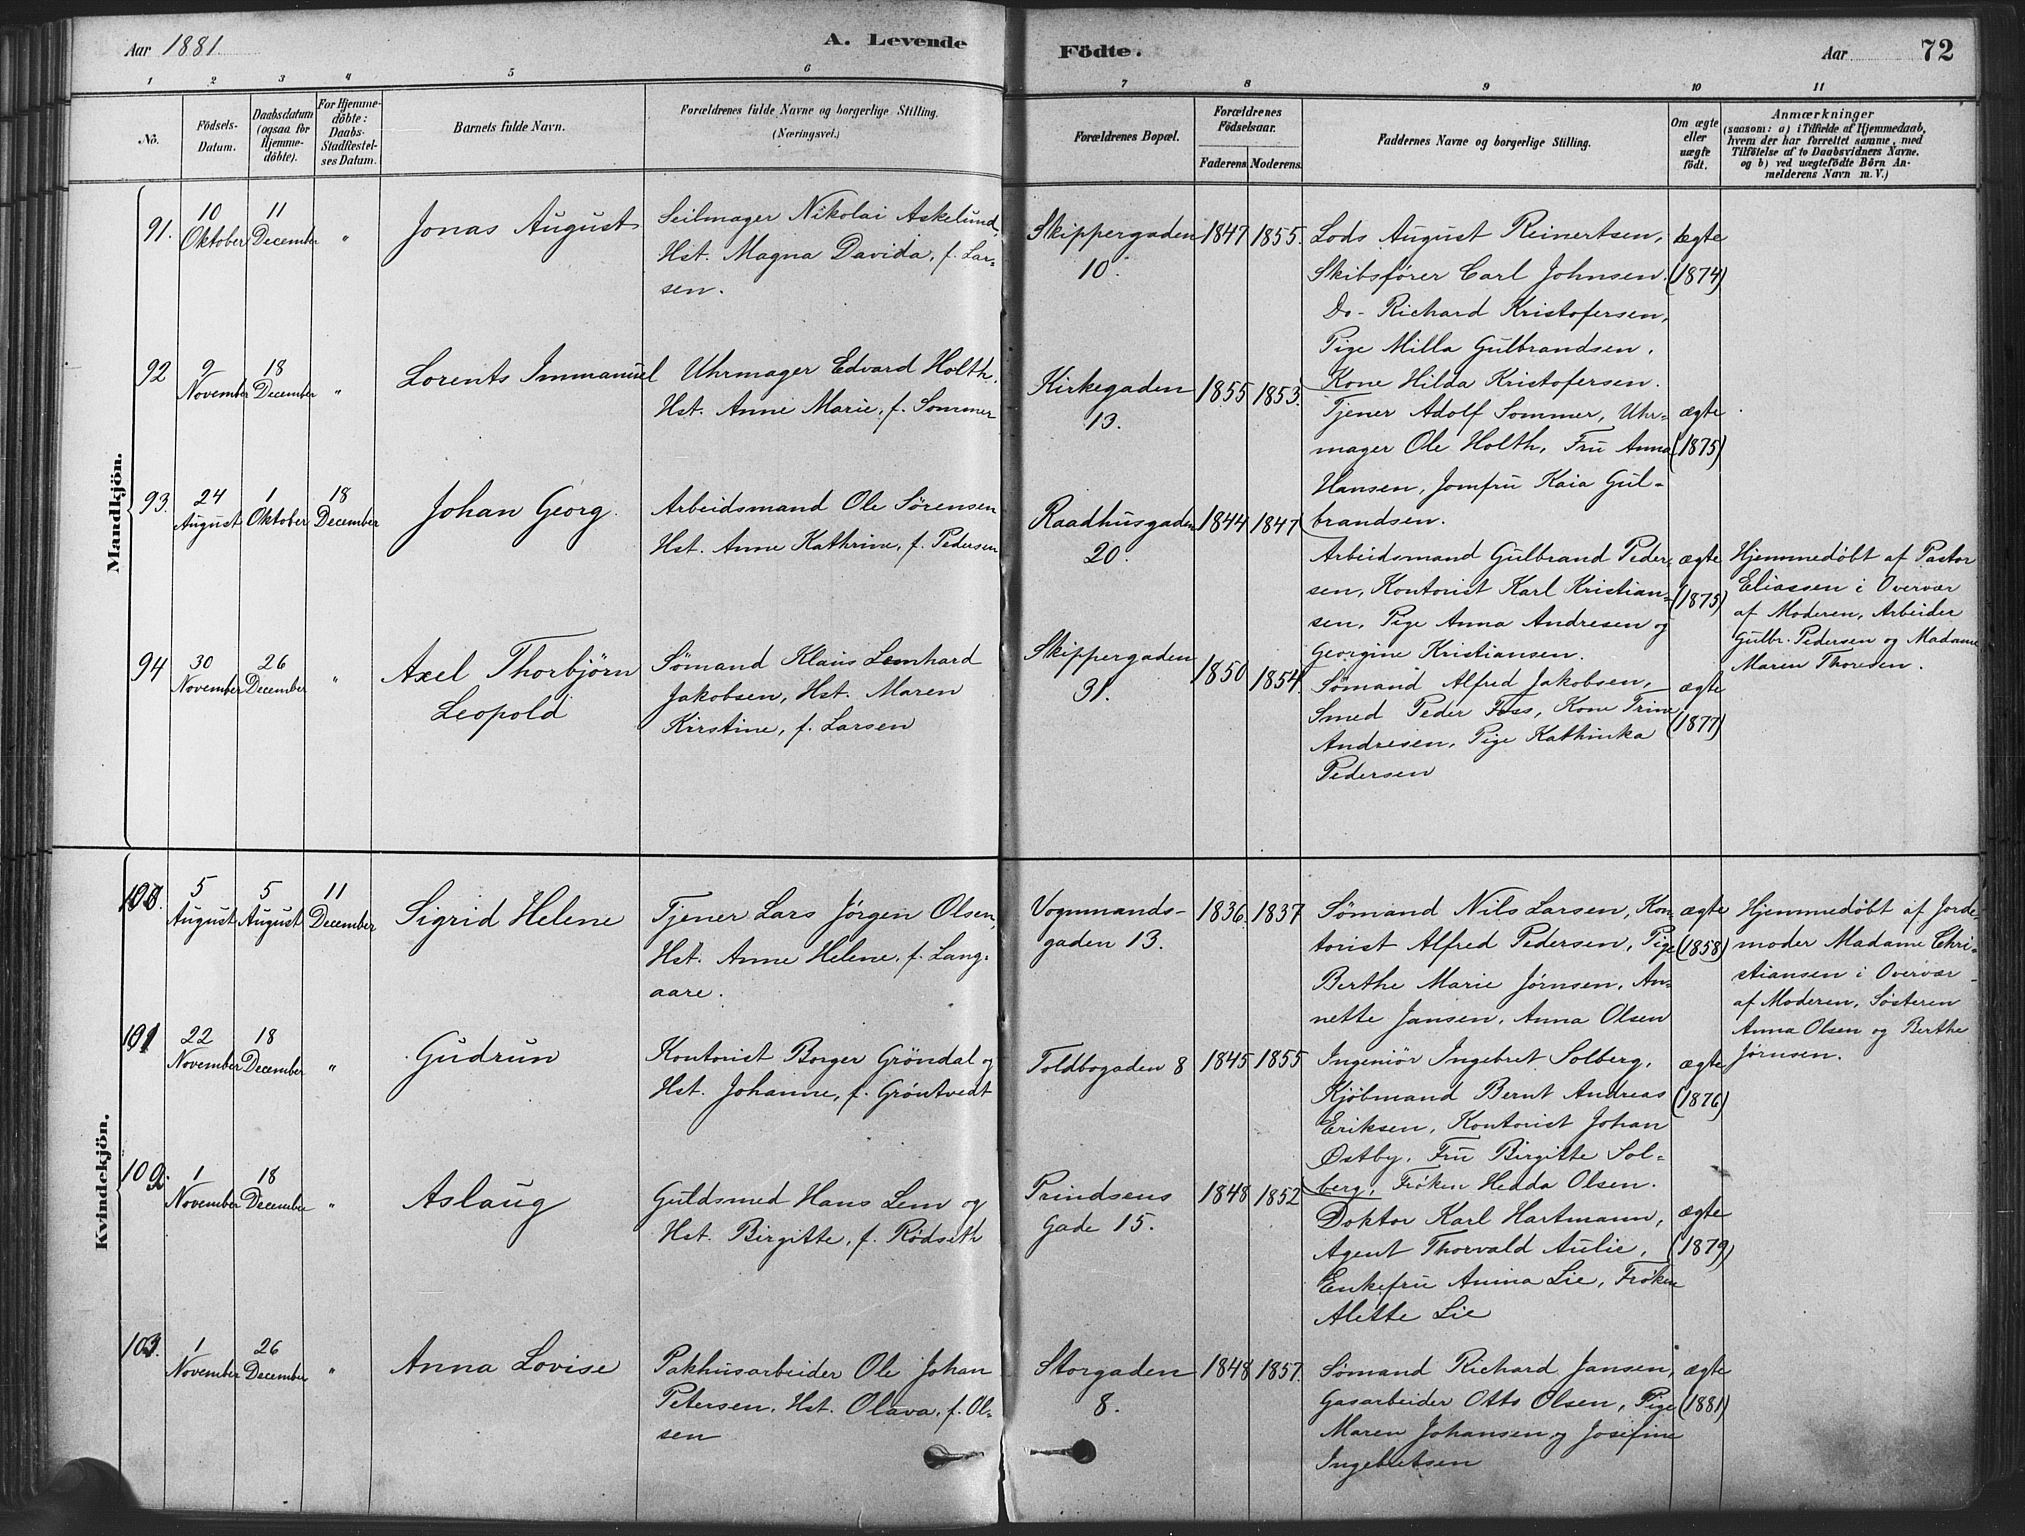 Aar 1881.
A. Levende Födte.
Aar
72
1 2 3 4 5 6 7 8 9 10 11
No.
Födsels-
Datum.
Daabsdatum
(ogsaa for
Hjemme-
döbte).
For Hjemme-
döbte:
Daabs-
Stadfæstel-
ses Datum.
Barnets fulde Navn.
Forældrenes fulde Navne og borgerlige Stilling.
(Næringsvei.)
Forældrenes Bopæl.
Forældrenes
Födselsaar.
Faderens. Moderens.
Faddernes Navne og borgerlige Stilling.
Om ægte
eller
uægte
födt.
Anmærkninger
(saasom: a) i Tilfælde af Hjemmedaab,
hvem der har forrettet samme, med
Tilföielse af to Daabsvidners Navne.
og b) ved uægtefödte Börn An-
melderens Navn m. V.)
Mandkjön.
91.
10
Oktober
11
December
"
Jonas August
Seilmager Nikolai Askelund,
Hst. Magna Davida, f. Lar-
sen.
Skippergaden
10.
1847
1855.
Lods August Reinertsen,
Skibsfører Carl Johnsen.
Do- Richard Kristofersen,
Pige Milla Gulbrandsen,
Kone Hilda Kristofersen.
ægte
(1874)
92
9
November
18
December
"
Lorents Immanuel
Uhrmager Edvard Holth,
Hst. Anne Marie, f. Sommer
Kirkegaden
13.
1855
1853.
Tjener Adolf Sommer, Uhr-
mager Ole Holth, Fru Anna
Hansen, Jomfru Kaia Gul-
brandsen.
ægte
(1875)
93.
24
August
1
Oktober
18
December
Johan Georg.
Arbeidsmand Ole Sørensen
Hst. Anne Kathrine, f. Pedersen
Raadhusgaden
20.
1844
1847
Arbeidsmand Gulbrand Peder-
sen, Kontorist Karl Kristian-
sen, Pige Anna Andresen og
Georgine Kristiansen.
ægte
(1875)
Hjemmedøbt af Pastor
Eliassen i Overvær
af Moderen, Arbeider
Gulbr. Pedersen og Madame
Maren Thoresen.
94
30
November
26
December
"
Axel Thorbjörn
Leopold
Sømand Klaus Lemhard
Jakobsen, Hst. Maren
Kirstine, f. Larsen
Skippergaden
31.
1850
1854
Sømand Alfred Jakobsen,
Smed Peder Foss, Kone Trine
Andresen, Pige Kathinka
Pedersen
ægte
(1877)
Kvindekjön.
100.
5
August
5
August
11
December
Sigrid Helene
Tjener Lars Jørgen Olsen,
Hst. Anne Helene, f. Lang-
aare.
Vognmands-
gaden 13.
1836
1837
Sømand Nils Larsen, Kon-
torist Alfred Pedersen, Pige
Berthe Marie Jørnsen, An-
nette Jansen, Anna Olsen
ægte
(1858)
Hjemmedøbt af Jorde-
moder Madame Chri-
stiansen i Overvær
af Moderen, Søsteren
Anna Olsen og Berthe
Jørnsen.
101
22
November
18
December
"
Gudrun
Kontorist Borger Gröndal og
Hst. Johanne, f. Gröntvedt
Toldbogaden 8
1845
1855
Ingeniör Ingebret Solberg,
Kjöbmand Bernt Andreas
Eriksen, Kontorist Johan
Østby, Fru Birgitte Sol-
berg, Frøken Hedda Olsen.
ægte
(1876)
102.
1
November
18
December
"
Aslaug
Guldsmed Hans Lem og
Hst. Birgitte, f. Rödseth
Prindsens
Gade 15.
1848
1852
Doktor Karl Hartmann,
Agent Thorvald Aulie,
Enkefru Anina Lie, Frøken
Alette Lie
ægte
(1879)
103.
1
November
26
December
"
Anna Lovise
Pakhusarbeider Ole Johan
Petersen, Hst. Olava, f. Ol-
sen
Storgaden
8.
1848
1857.
Sømand Richard Jansen,
Gasarbeider Otto Olsen, Pige
Maren Johansen og Josefine
Ingebretsen
ægte
(1881)